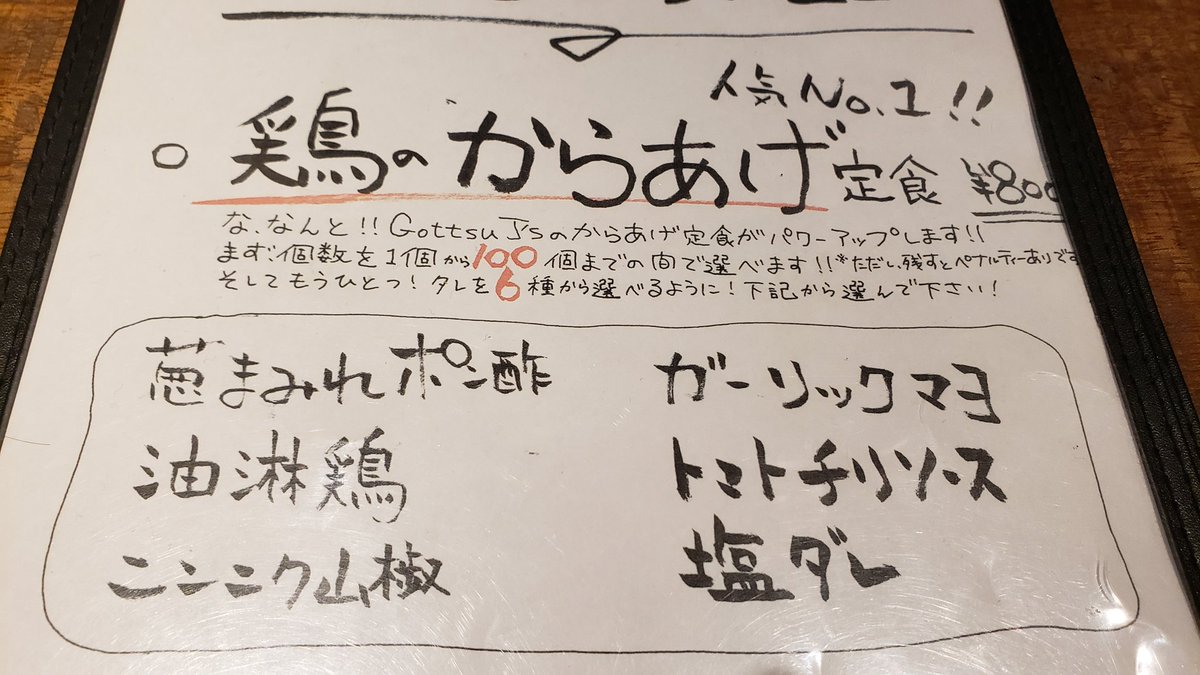 人気No.1!!
○ 鶏のからあげ定食 ¥800
な、なんと!!Gottsu J'sのからあげ定食がパワーアップします!!
まず、個数を1個から100個までの間で選べます!!*ただし、残すとペナルティーありです
そしてもうひとつ!タレを6種から選べるように!下記から選んで下さい!
葱まみれポン酢 ガーリックマヨ
油淋鶏 トマトチリソース
ニンニク山椒 塩ダレ